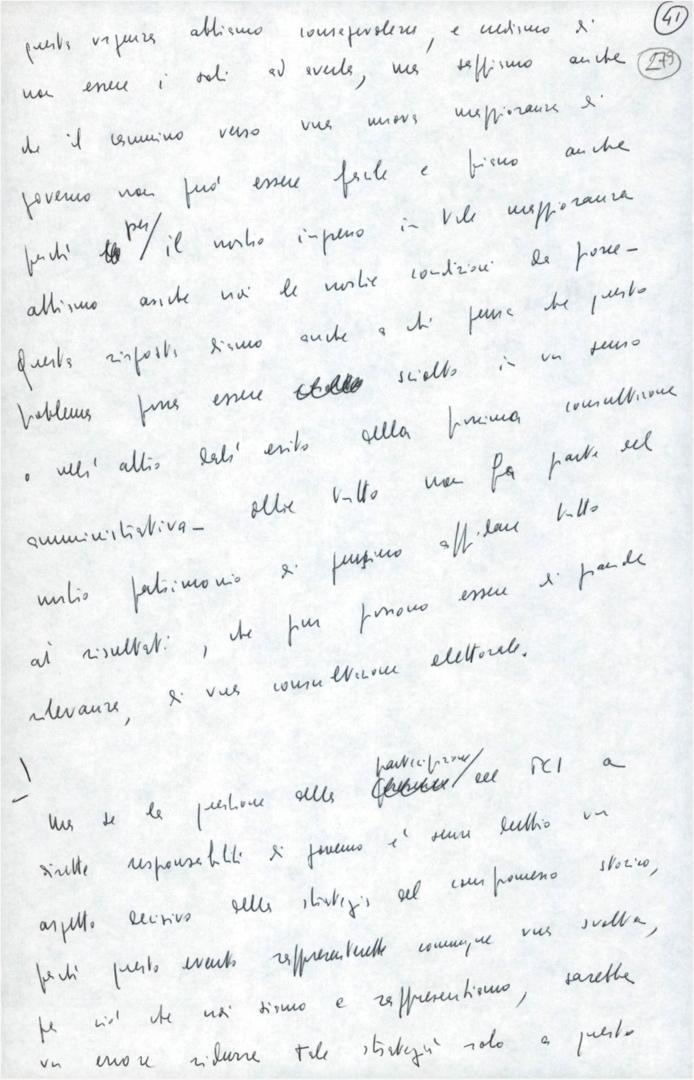 41
questa urgenza abbiamo consapevolezza, e crediamo di
279
non essere i soli ad averla, ma sappiamo anche
che il cammino verso una nuova maggioranza di
governo non può essere facile e piano anche
perché per il nostro impegno in tale maggioranza
abbiamo anche noi le nostre condizioni da porre–
Questa risposta diamo anche a chi pensa che questo
problema possa essere sciolto in un senso
o nell'altro dall'esito della prossima consultazione
amministrativa– Oltre tutto non fa parte del
nostro patrimonio di pensiero affidare tutto
ai risultati, che pur possono essere di grande
rilevanza, di una consultazione elettorale.
participazione
Ma se la questione della del PCI a
dirette responsabilità di governo è senza dubbio un
aspetto decisivo della strategia del compromesso storico,
perché questo evento rappresenterebbe comunque una svolta,
per ciò che noi siamo e rappresentiamo, sarebbe
un errore ridurre tale strategia solo a questo